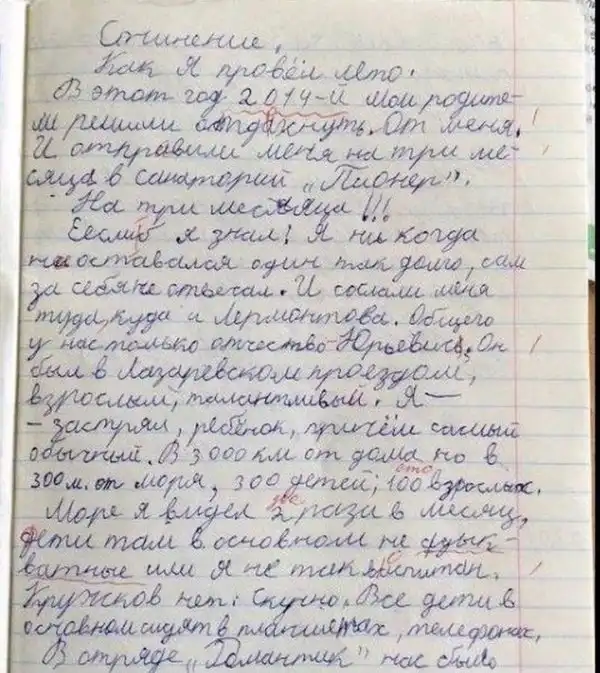 Сочинение.
Как я провёл лето.
В этот год 2014-й мои родите-
ли решили отдахнуть. От меня.
И отправили меня на три ме-
сяца в санаторий „Пионер".
На три месяца!!!
Еслиб я знал! Я ни когда
не оставался один так долго, сам
за себя не отвечал. И сослали меня
туда, куда и Лермонтова. Общего
у нас только отчество-Юрьевич. Он
был в Лазаревском проездом,
взрослый, талантливый. Я —
- застрял, ребёнок, причём самый
обычный. В 3000 км от дома но в
сто
300 м. от моря, 300 детей, 100 взрослых.
две
Море я видел 2 раза в месяц,
дети там в основном не адык-
ватные или я не так воспитан.
Кружков нет. Скучно. Все дети в
основном сидят в планшетах, телефонах.
В отряде „Романтик" нас было